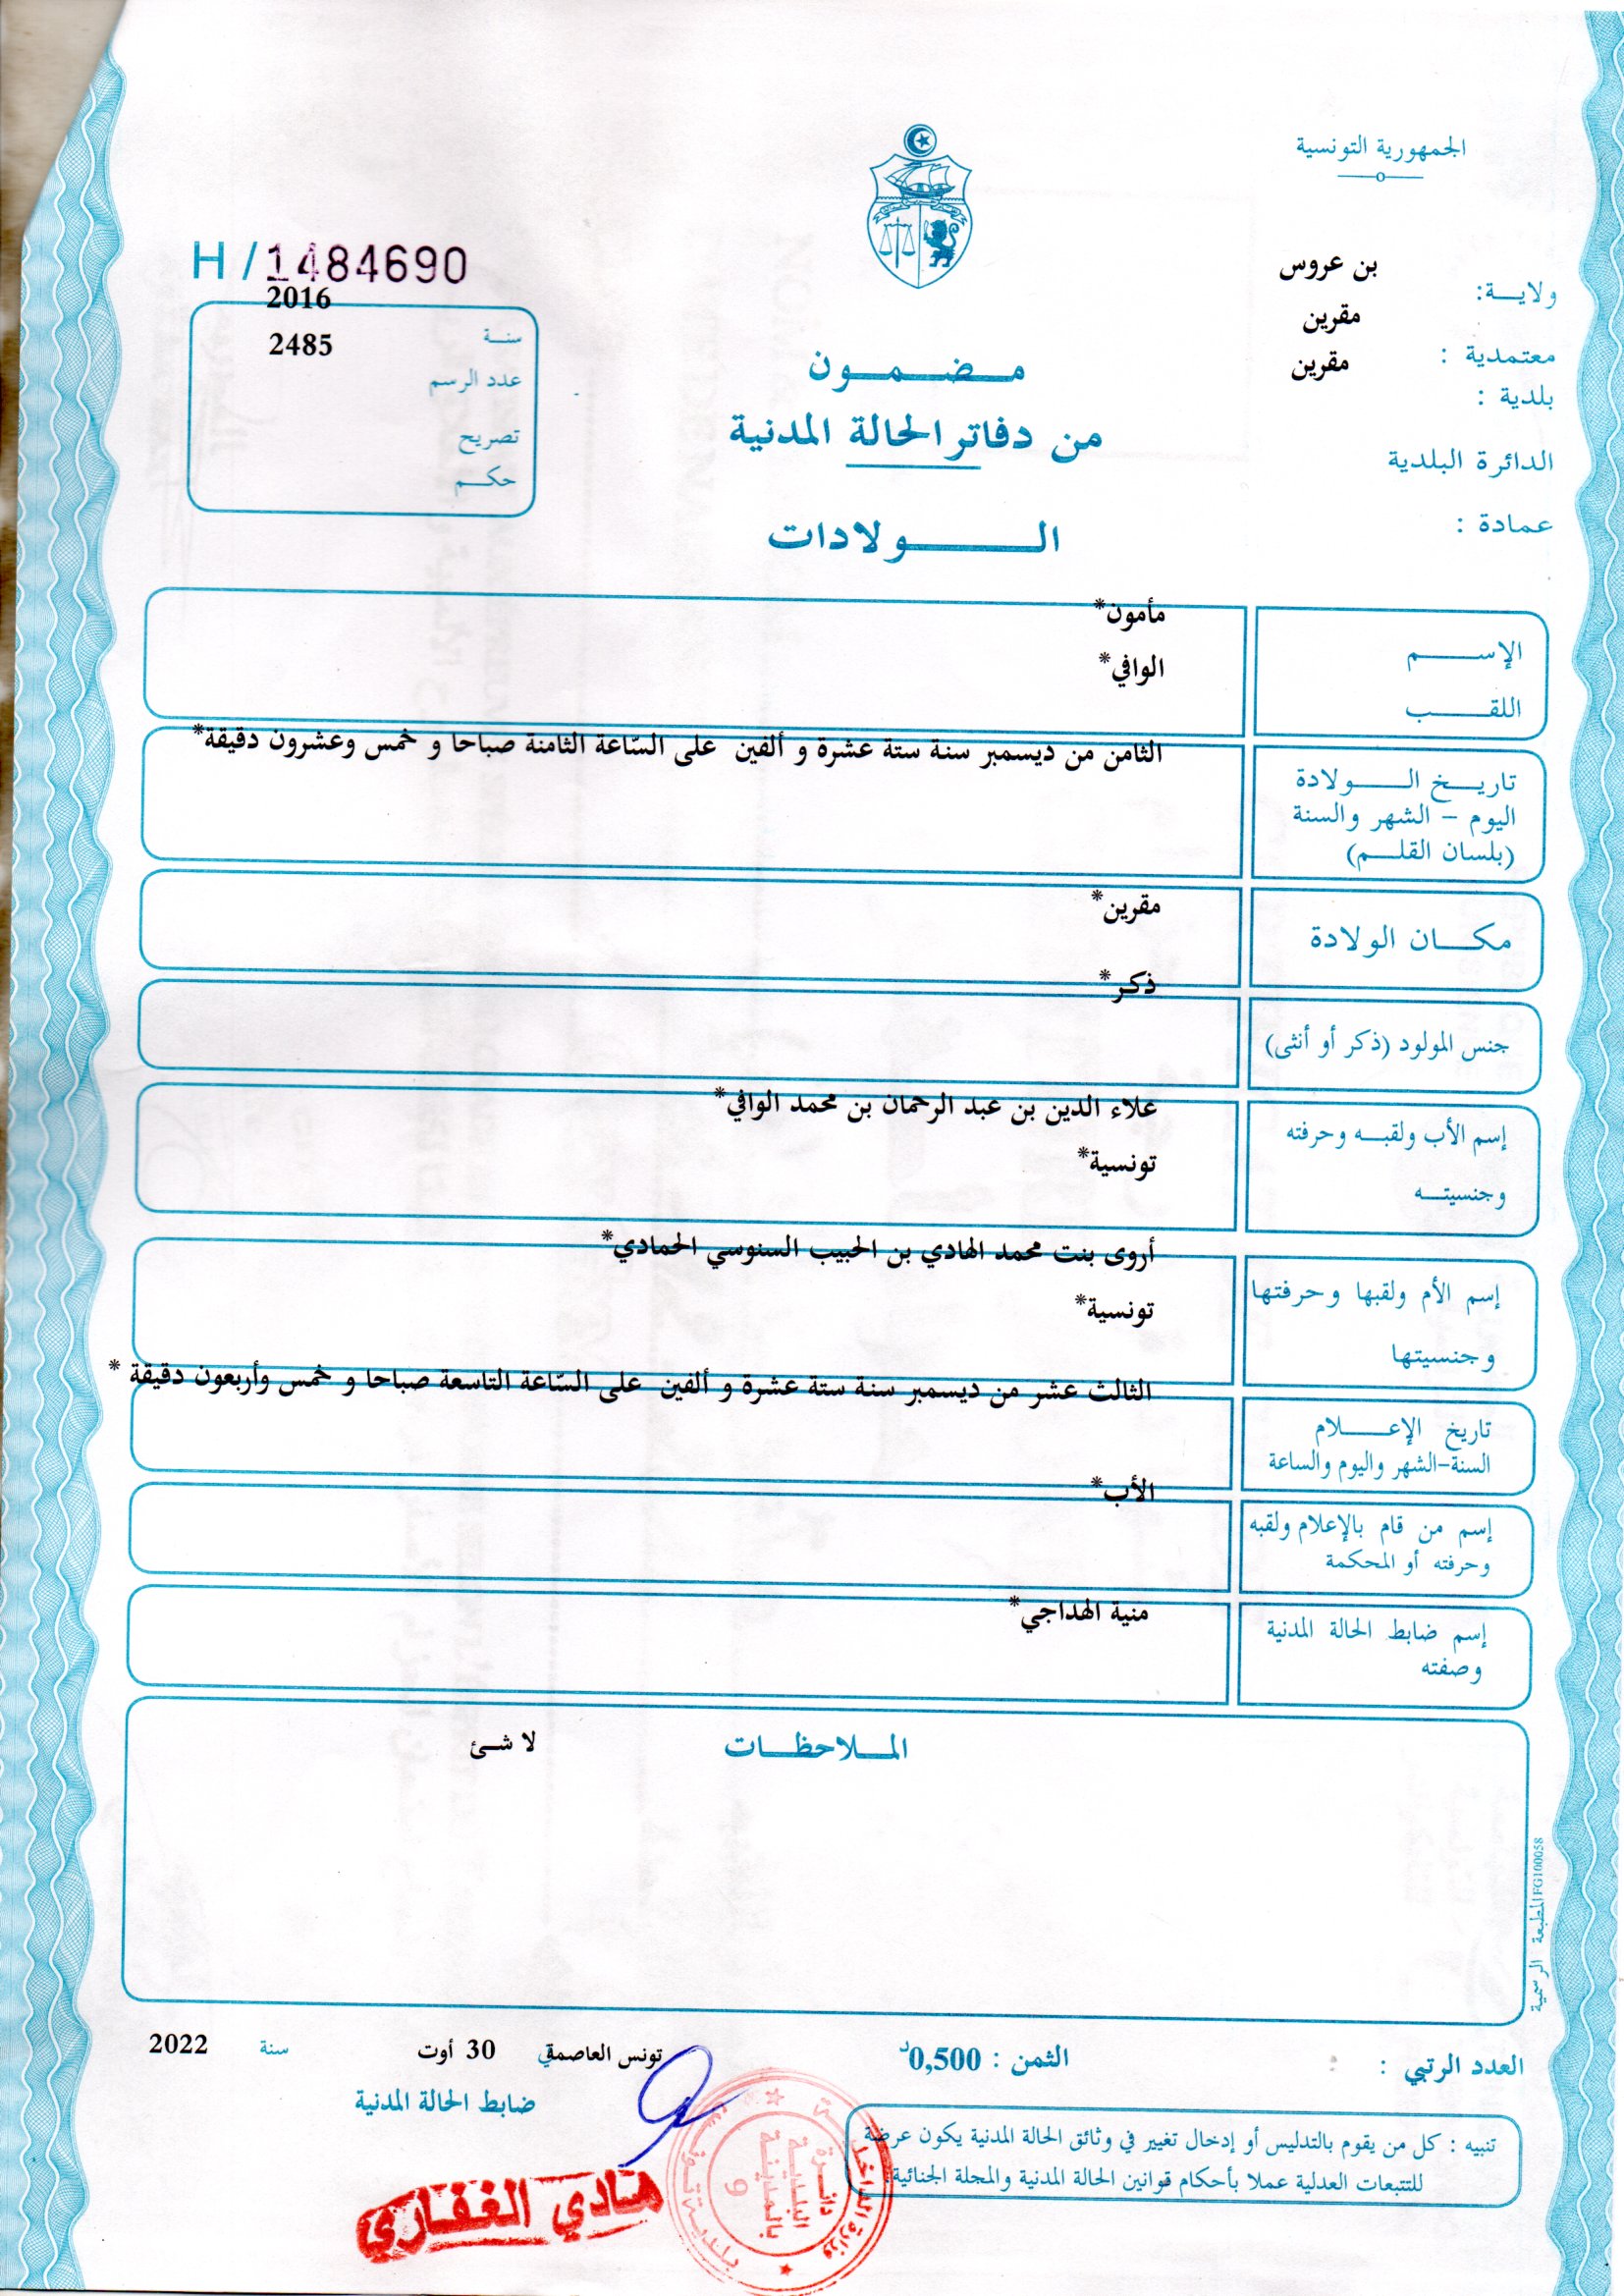 الجمهورية التونسية
H/1484690
ولايـــة: بن عروس
معتمدية : مقرين
بلدية : مقرين
الدائرة البلدية
عمادة :
سنــة 2016
عدد الرسم 2485
تصريح
حكــم
مـضـمـون
من دفاتر الحالة المدنية
الــولادات
الإســـم مأمون*
اللقـــب الوافي*
تاريــخ الــــولادة
اليوم - الشهر والسنة
(بلسان القلــم)
الثامن من ديسمبر سنة ستة عشرة و ألفين على السّاعة الثامنة صباحا و خمس وعشرون دقيقة*
مكـــان الولادة مقرين*
جنس المولود (ذكر أو أنثى) ذكر*
إسم الأب ولقبــه وحرفته علاء الدين بن عبد الرحمان بن محمد الوافي*
وجنسيتــه تونسية*
إسم الأم ولقبها وحرفتها أروى بنت محمد الهادي بن الحبيب السنوسي الحمادي*
وجنسيتها تونسية*
تاريخ الإعـــلام
السنة-الشهر واليوم والساعة
الثالث عشر من ديسمبر سنة ستة عشرة و ألفين على السّاعة التاسعة صباحا و خمس وأربعون دقيقة *
إسم من قام بالإعلام ولقبه
وحرفته أو المحكمة
الأب*
إسم ضابط الحالة المدنية
وصفته
منية الهداجي*
المــلاحظــات لا شئ
المطبعة الرسمية FG100058
العدد الرتبي :
الثمن : 0,500د
تونس العاصمة في 30 أوت سنة 2022
ضابط الحالة المدنية
تنبيه : كل من يقوم بالتدليس أو إدخال تغيير في وثائق الحالة المدنية يكون عرضة
للتتبعات العدلية عملا بأحكام قوانين الحالة المدنية والمجلة الجنائية.
هادي الغفاري
وزارة الداخلية
بلدية تونس
دائرة
البلدية
بالمدينة
9